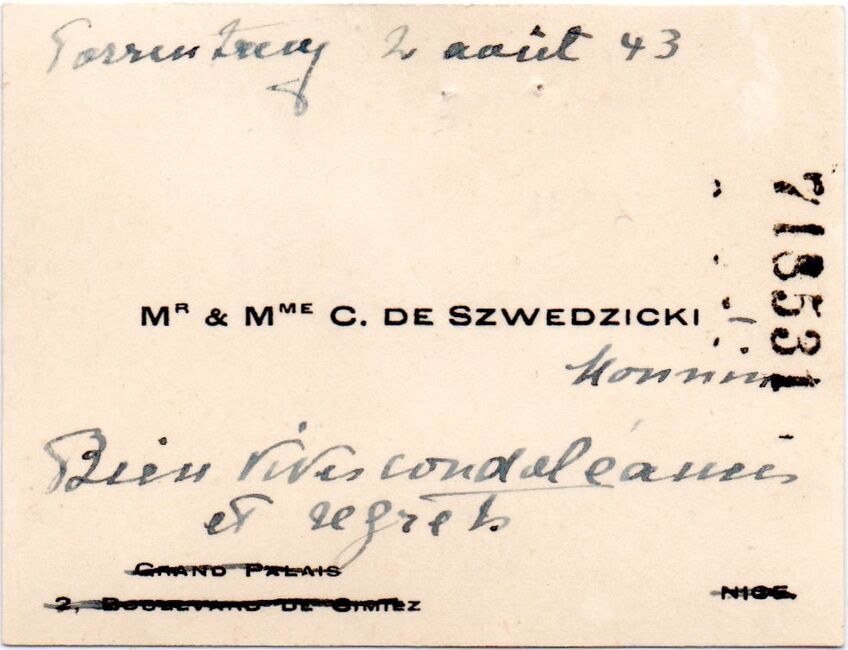 Porrentruy 2 août 43
MR & MME C. DE SZWEDZICKI -
Monnin
Bien vives condoléances
et regrets
GRAND PALAIS
2, BOULEVARD DE CIMIEZ
NICE.